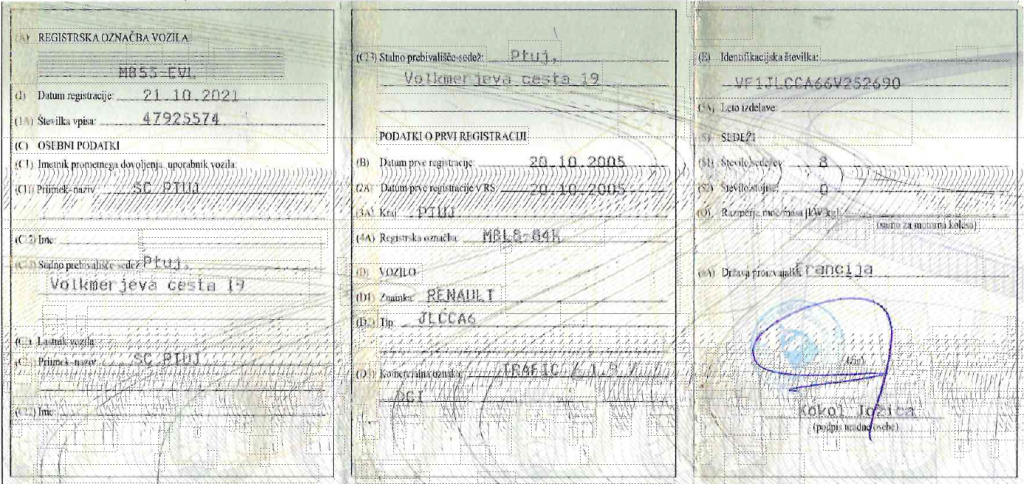 (A) REGISTRSKA OZNAČBA VOZILA
MB55-EVL
(I) Datum registracije: 21.10.2021
(1A) Številka vpisa: 47925574
(C) OSEBNI PODATKI
(C1) Imetnik prometnega dovoljenja, uporabnik vozila:
(C11) Priimek-naziv: SC PTUJ
(C12) Ime:
(C13) Stalno prebivališče-sedež: Ptuj,
Volkmerjeva cesta 19
(C2) Lastnik vozila:
(C21) Priimek-naziv: SC PTUJ
(C22) Ime:
(C23) Stalno prebivališče-sedež: Ptuj,
Volkmerjeva cesta 19
PODATKI O PRVI REGISTRACIJI
(B) Datum prve registracije: 20.10.2005
(2A) Datum prve registracije v RS: 20.10.2005
(3A) Kraj: PTUJ
(4A) Registrska označba: MBL8-84K
(D) VOZILO
(D1) Znamka: RENAULT
(D2) Tip: JLCCA6
(D3) Komercialna oznaka: TRAFIC / 1.9 /
DCI
(E) Identifikacijska številka:
VF1JLCCA66V252690
(5A) Leto izdelave:
(S) SEDEŽI
(S1) Število sedežev: 8
(S2) Število stojišč: 0
(Q) Razmerje moč/masa [kW/kg]:
(samo za motorna kolesa)
(6A) Država proizvajalka: Francija
(žig)
Kokol Jožica
(podpis uradne osebe)